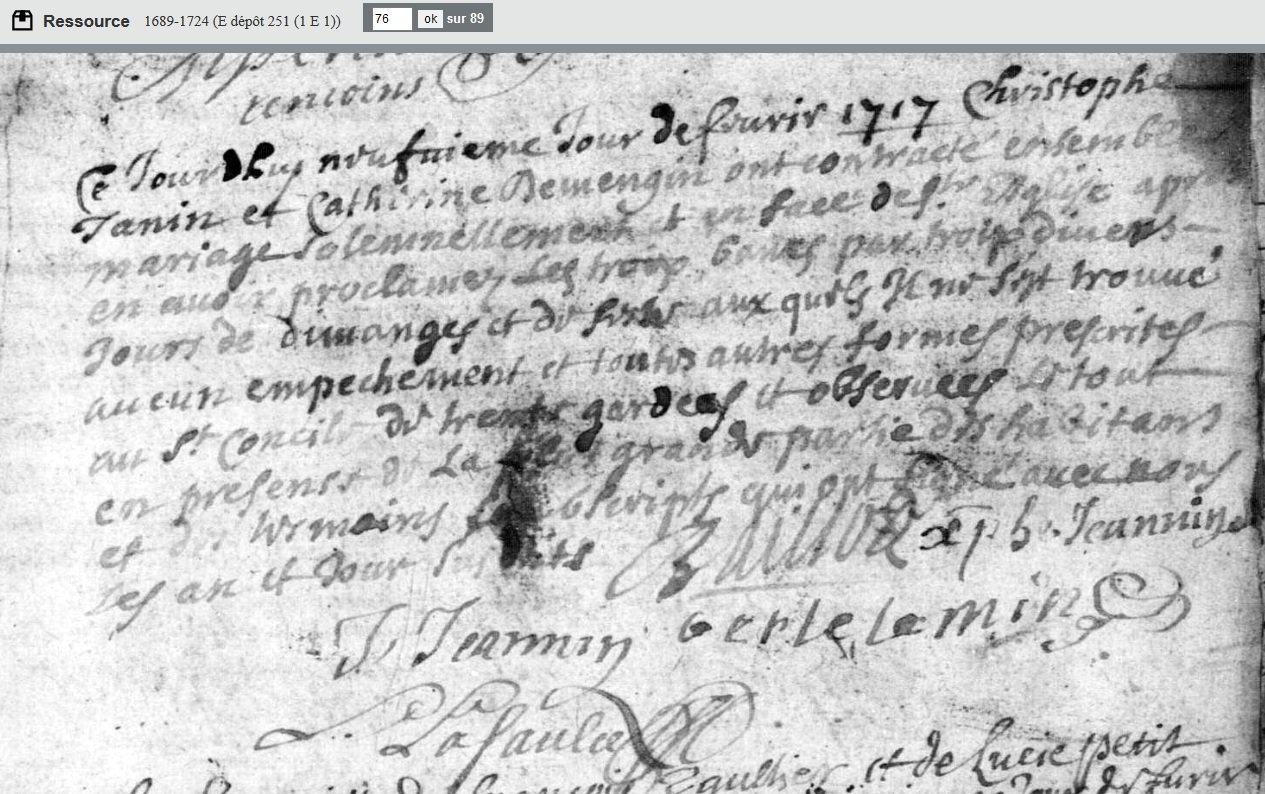 Ressource 1689-1724 (E dépôt 251 (1 E 1)) 76 ok sur 89
temoins
Ce Jourdhuy neufuieme Jour de feurir 1717 Christophe
Janin et Catherine Demengin ont contracté ensemble
mariage solemnellement et en face de s.te Eglise apres
en auoir proclamez Les trois bans par trois diuers
Jours de dimanges et de festes aux quels Il ne s'est trouué
aucun empechement et toutes autres formes prescrites
au st Concile de trente gardees et obseruees Le tout
en presense de La plus grande partie des habitans
et des temoins soubscripts qui ont signé auec nous
Les an et Jour susdits xp̄h. Jeannin
J Jeannin berlelemin
LaSaulce
Egaultier et de Lucie petit
Jour de feurir